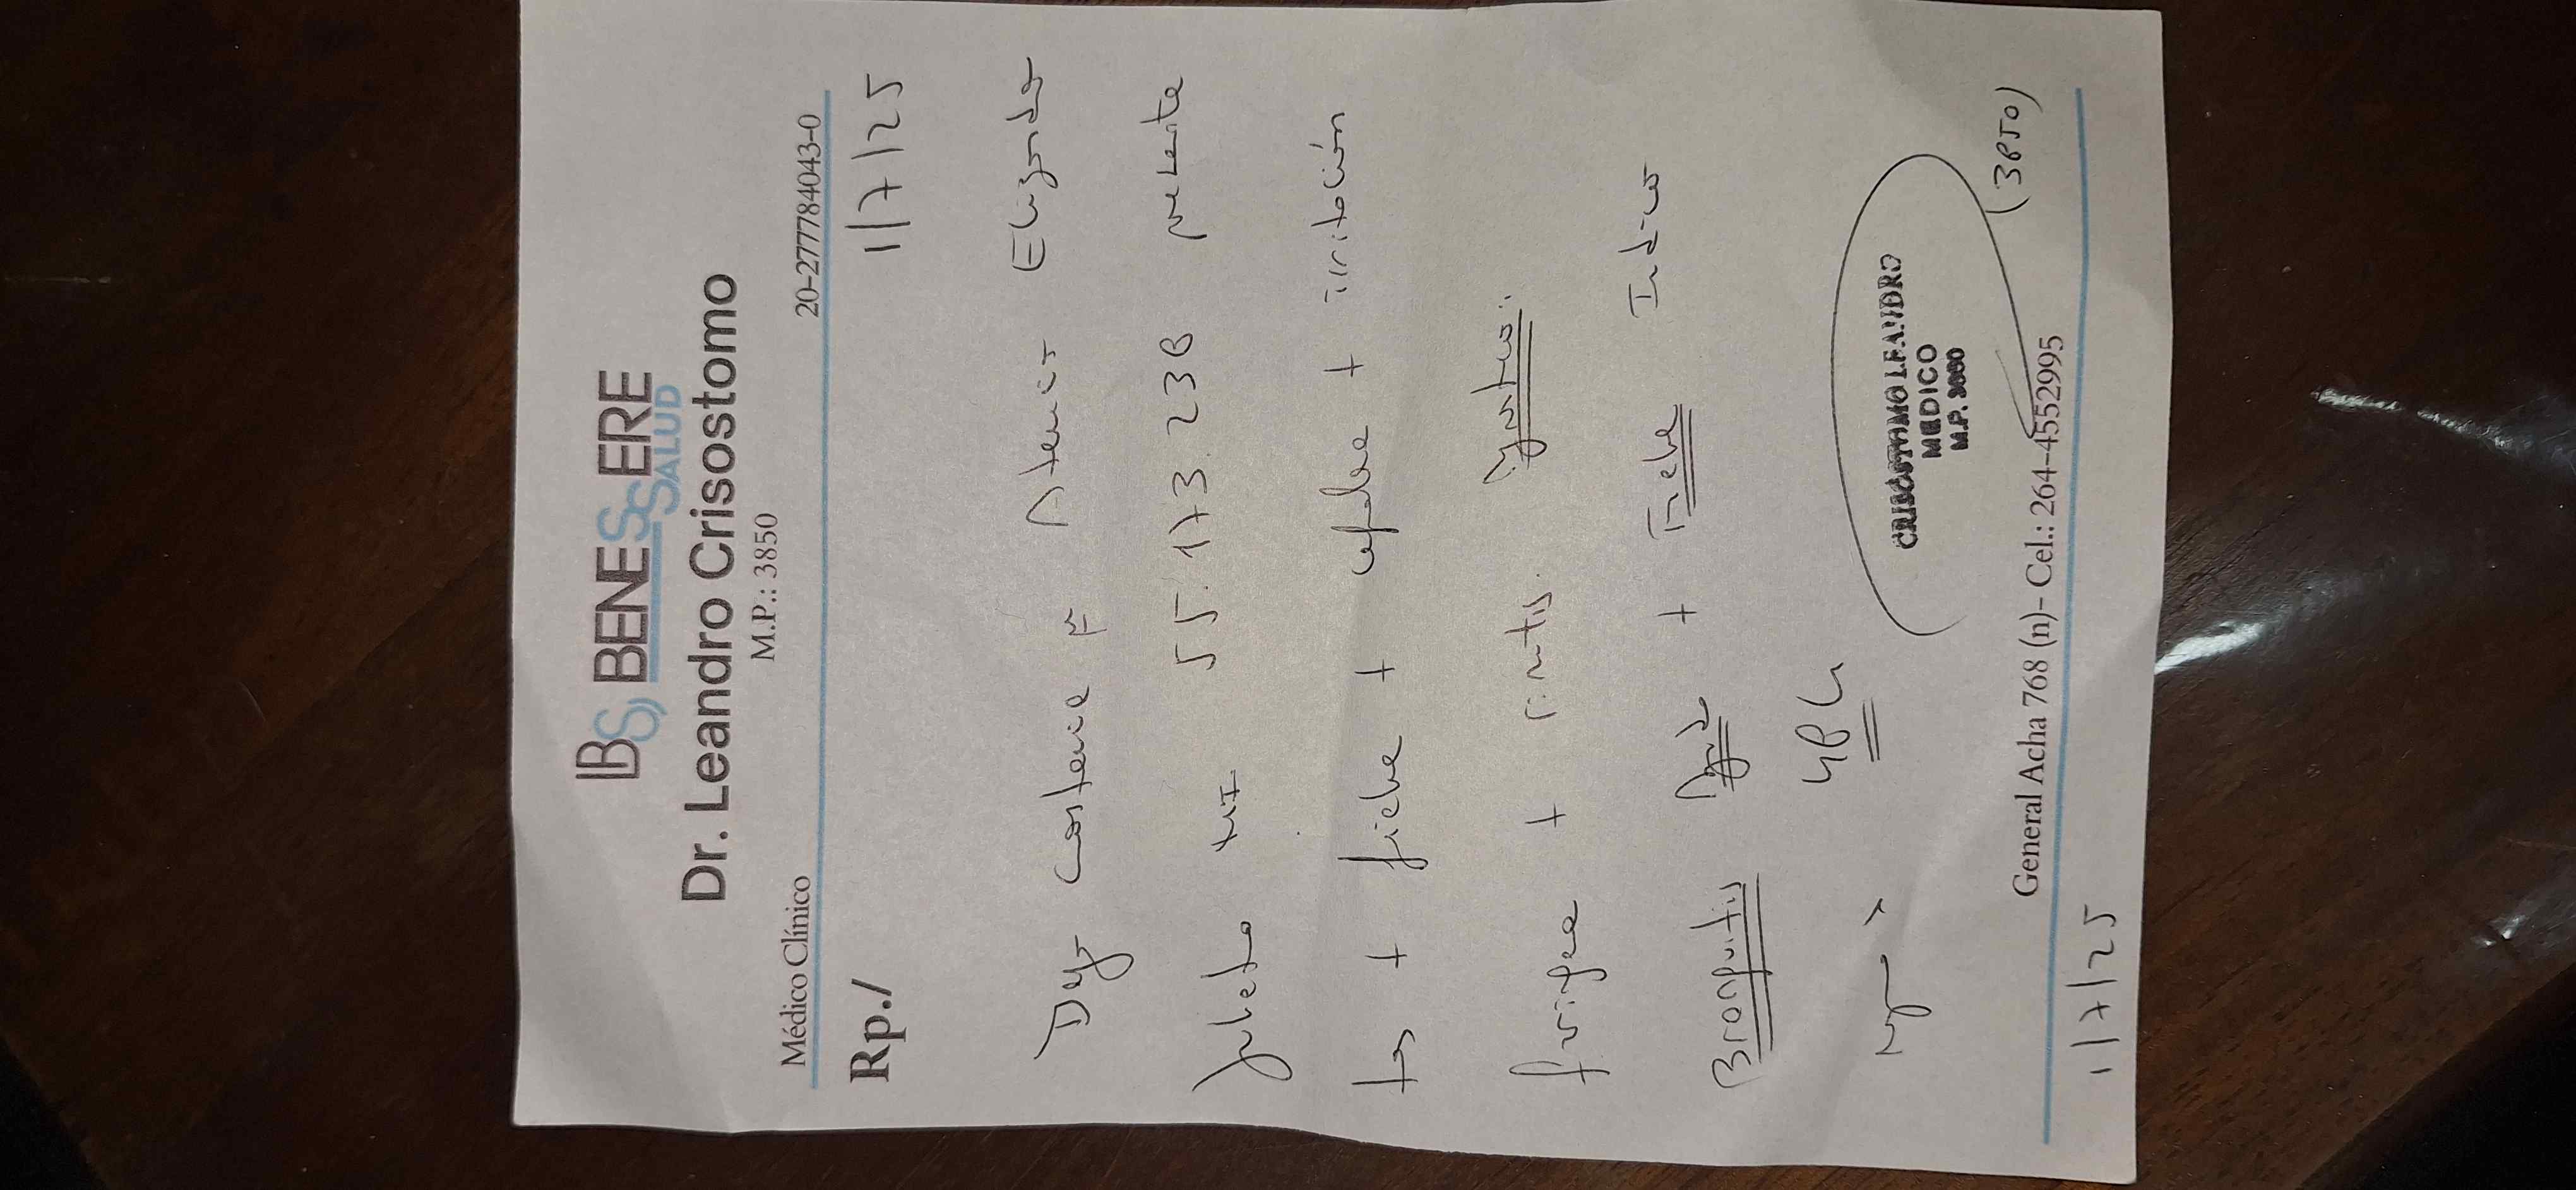 BS BENESSERE
SALUD
Dr. Leandro Crisostomo
M.P.: 3850
Médico Clínico 20-277784043-0
Rp./ 1/7/25
Dejo constancia Atencio Elizondo
Julieta 55.173.238 presente
tos + fiebre + cefalea + irritación
faringea + rinitis.
Bronquitis Aguda + Fiebre Indico
48 h
CRISOSTOMO LEANDRO
MEDICO
M.P. 3850
(3850)
General Acha 768 (n)- Cel.: 264-4552995
1/7/25